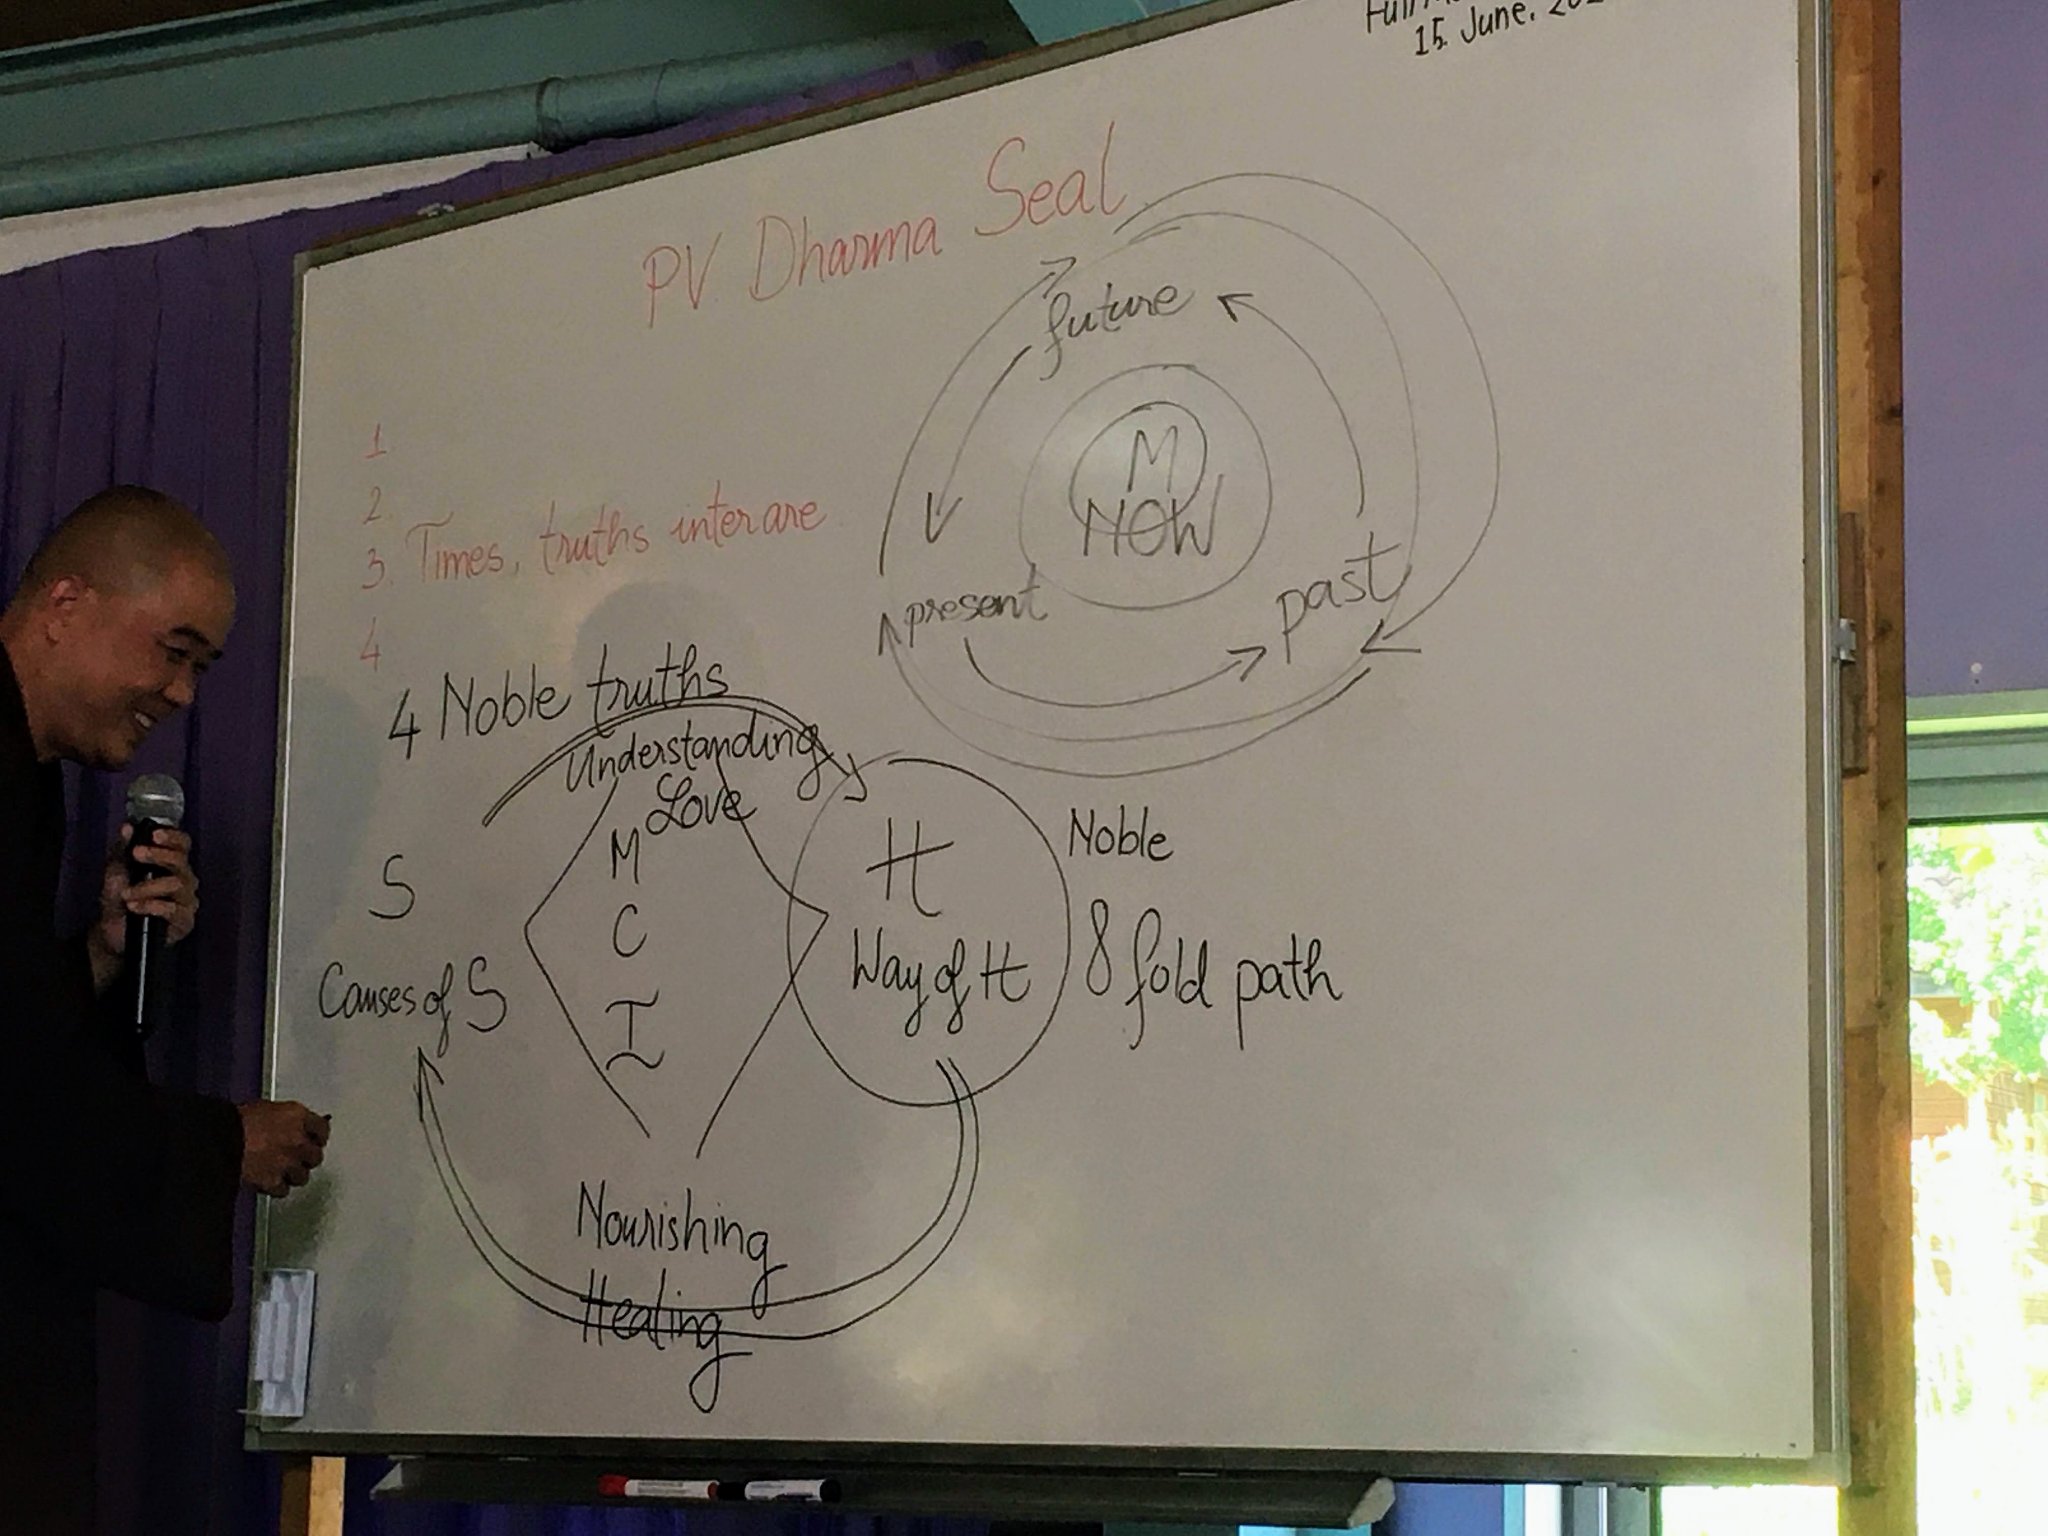 15. June.
PV Dharma Seal
future
M
NOW
present
past
1
2
3. Times, truths inter are
4
4 Noble truths
Understanding
Love
M
C
I
S
Causes of S
H
Way of H
Noble
8 fold path
Nourishing
Healing